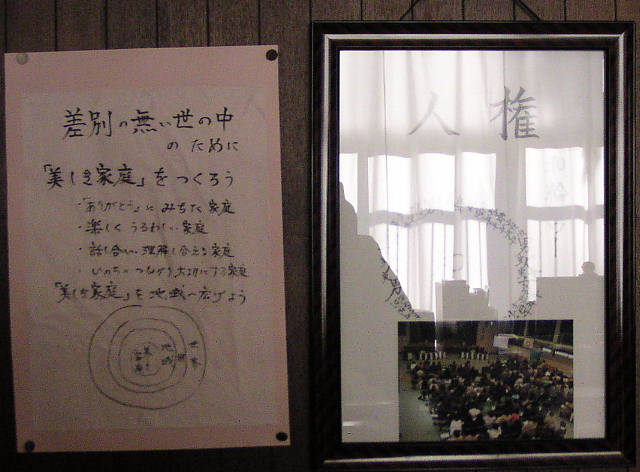 差別の無い世の中
のために
「美しき家庭」をつくろう
・「ありがとう」にみちた家庭
・楽しくうるわしい家庭
・話し合い理解し合える家庭
・いのちのつながり大切にする家庭
「美しき家庭」を地域へ広げよう
世界
国
地域
美しき家庭
人権